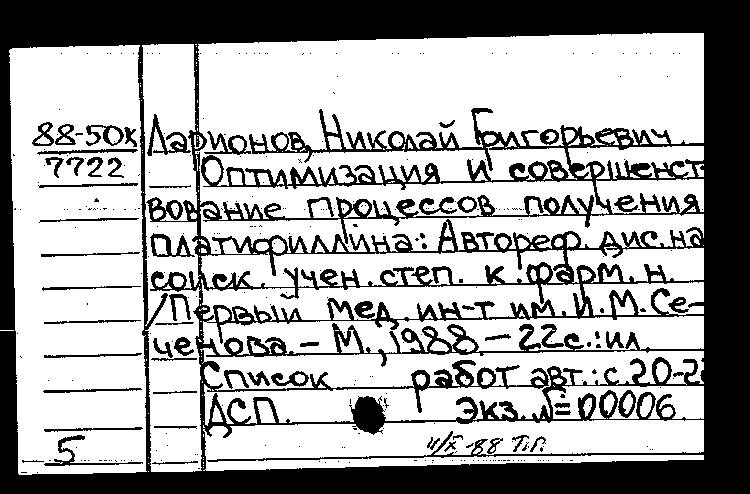 88-50к Ларионов, Николай Григорьевич
7722 Оптимизация и совершенст-
вование процессов получения
платифиллина: Автореф. дис. на
соиск. учен. степ. к. фарм. н.
/Первый мед. ин-т им. И. М. Се-
ченова. – М., 1988. – 22с.: ил.
Список работ авт.: с. 20-22
ДСП. Экз. № 00006
5